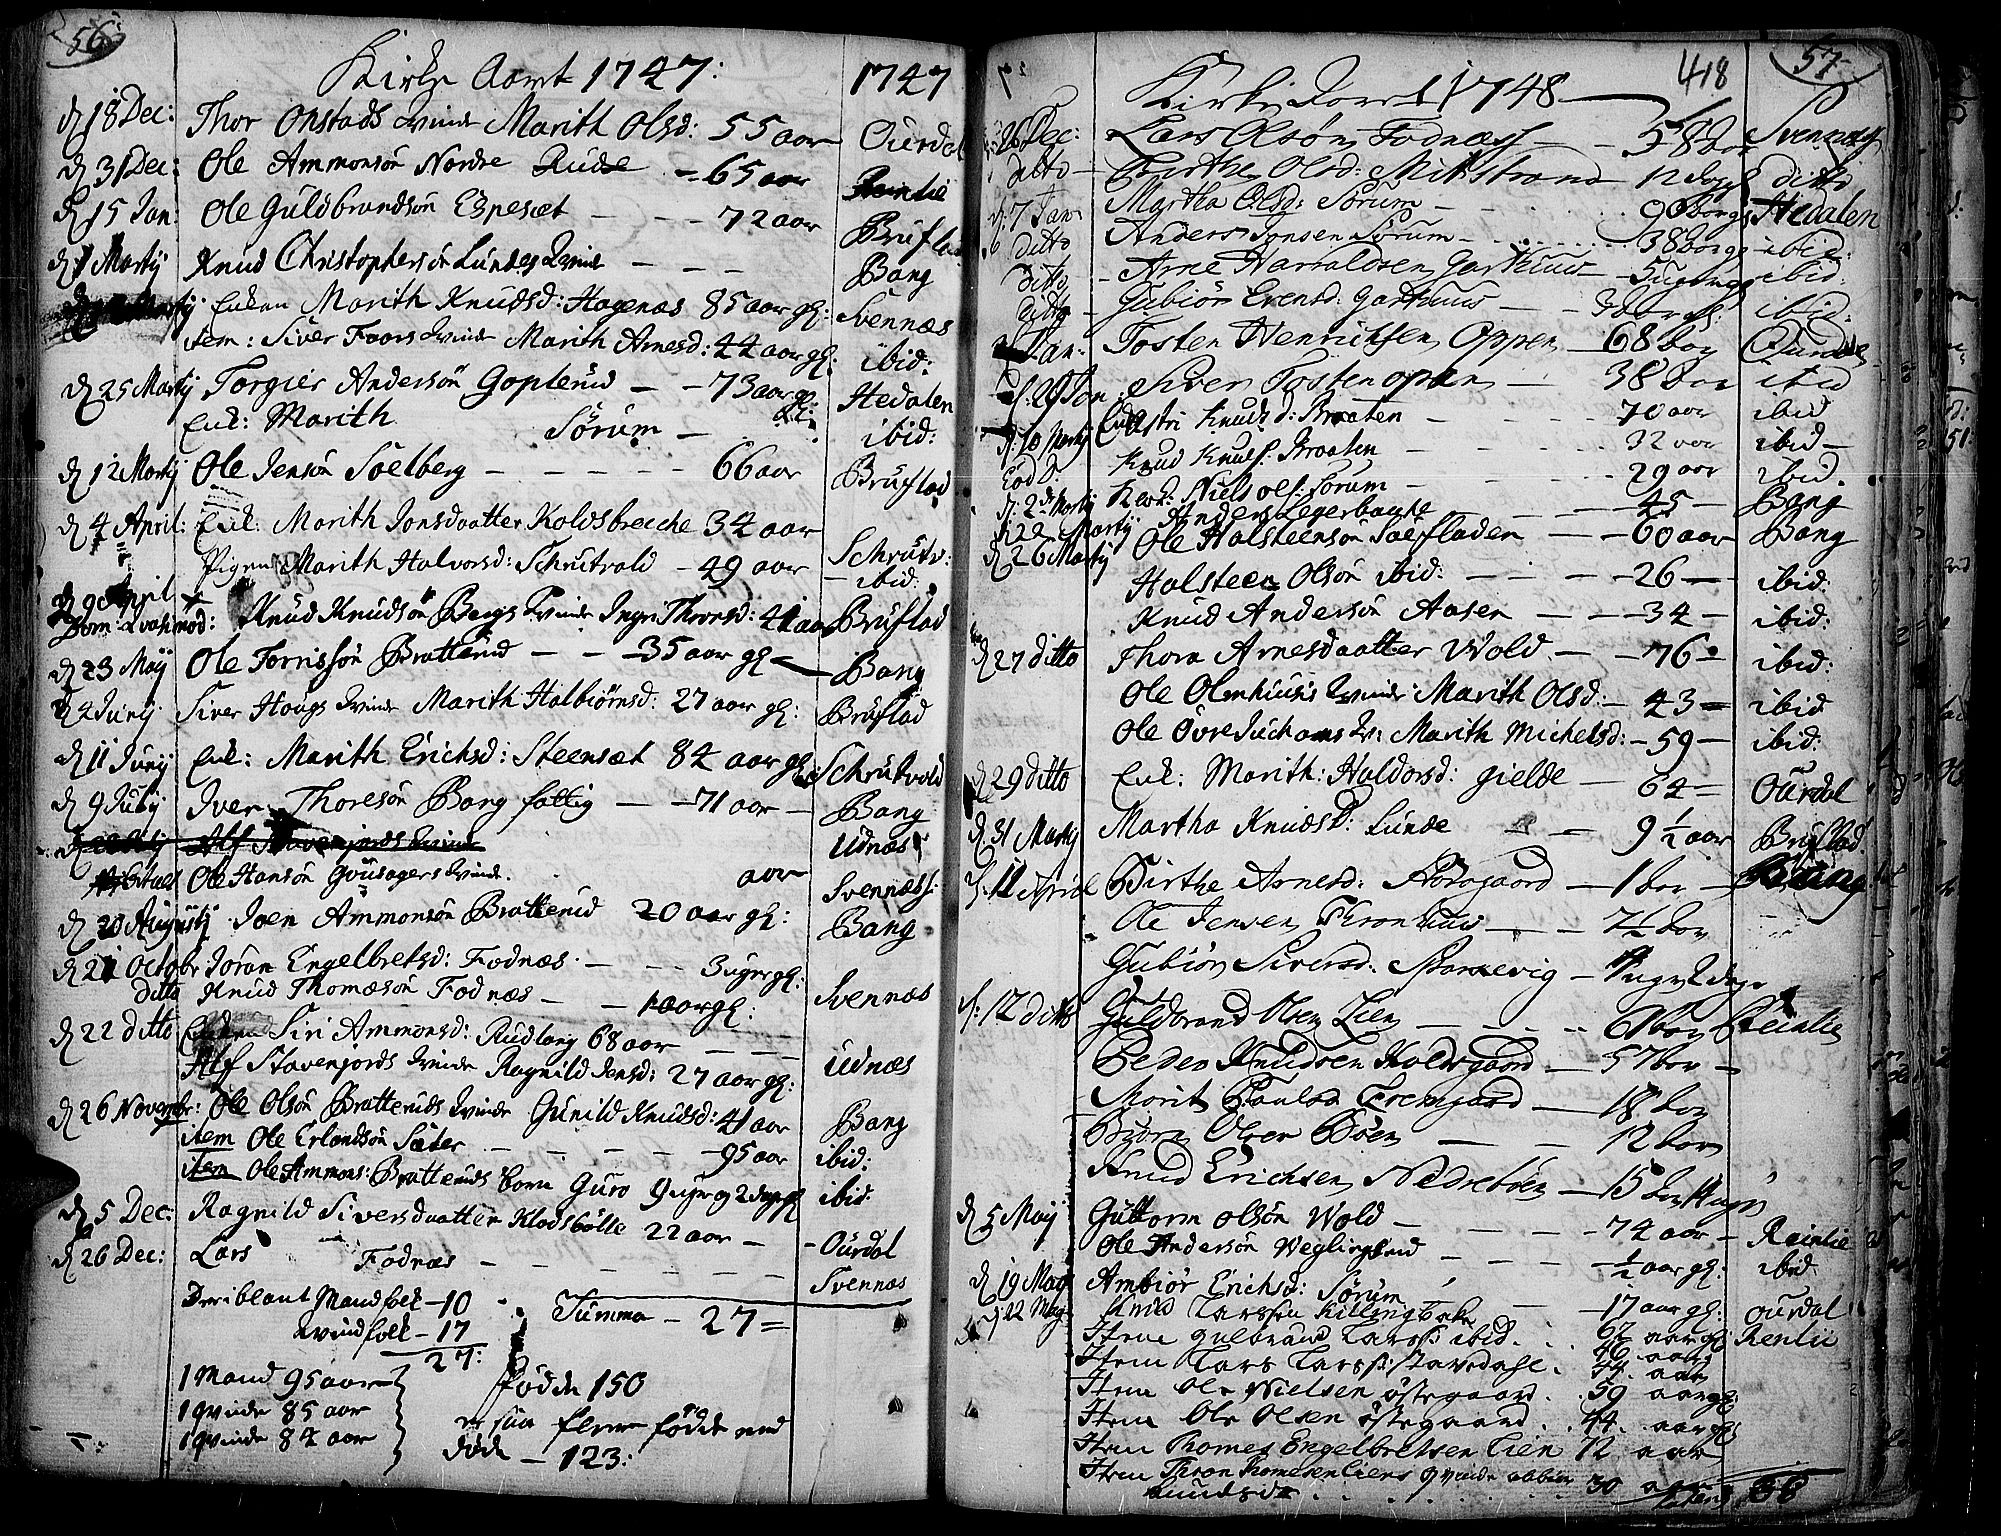 56
Kirke Aaret 1747:
1747
d 18 Dec: Thor Onstads Kvinde Marith Olsd: 55 aar Ourdal
d 31 Dec: Ole Ammonsön Nordre Rude - 65 aar Reinlie
d 15 Jan: Ole Guldbrandsön Espesæt - - - 72 aar Bruflad
d 1 Martij Knud Christophersön Lundes Kvinde - - - Bang
Enken Marith Knudsd: Hagenæs 85 aar gl: Svennæs
item: Siver Foors Kvinde Marith Arnesd: 44 aar gl: ibid:
d 25 Martij Torgier Andersön Goplerud - - 73 aar gl: Hedalen
Enk: Marith Sörum - ibid:
d 12 Martij Ole Jensön Soelberg - - - - - 66 aar Bruflad
d 4 April: Enk: Marith Jonsdaatter Koldsbreche 34 aar Schrutv:
Pigen Marith Halvorsd: Schrutvold - 49 aar - ibid:
d 9 April
Dom: Qvasimod: Knud Knudsön Bergs Kvinde Ingri Thoresd: 41 aar Bruflad
d 23 Maij Ole Torrissön Bratterud - - - 35 aar gl - Bang
d 4 Junij Siver Hougs Kvinde Marith Halbiörnsd: 27 aar gl: Bruflad
d 11 Junij Enk: Marith Erichsd: Steensæt 84 aar gl: Schrutvold
d 9 Julij Iver Thoresön Bang fattig - - 71 aar - Bang
Alf Stavenjords Kvinde Udnæs
Ole Hansön Gousagers Kvinde. aar Svennæss:
d 20 Augustij Joen Ammonsön Bratterud 20 aar gl: Bang
d 21 Octobr Jöran Engelbretsd: Fodnæs - - - 3 uger gl:
ditto Knud Thomæsön Fodnæs - - 1 aar gl: Svennæs
d 22 ditto Enken Siri Ammonsd: Rudlang 68 aar - - -
Alf Stavenjords Kvinde Ragnild Jensd: 27 aar gl: Udnæs
d 26 Novembr: Ole Olsön Bratteruds Kvinde Gunild Knudsd: 41 aar Bang
item Ole Erlandsön Sæter - - - - - 95 aar ibid:
item Ole Ammons: Bratteruds barn Guro 9 uger og 2 dage gl ibid:
d 5 Dec: Ragnild Siversdaatter Klosbölle 22 aar - - Ourdal
d 26 Dec: Lars Fodnæs - - - - - - Svennæs
Deriblant Mandfolk - 10
Kvindfolk - 17
27:
Summa - 27 =
1 Mand 95 aar
1 qvinde 85 aar
1 qvinde 84 aar
födde 150
er saa flere födde end
döde - 123:
57
418
Kirke Aaret 1748
26 Dec: Lars Olsön Fodnæss - - 58 aar Svennæs
ditto - Birthe Olsd: Midstrand - 12 dage ditto
d: 7 Jan Martha Olsd: Sörum - - - Hedalen
ditto Anders Jonsen Sörum - ibid:
ditto - Arne Harraldsen Garthuus - 5 uger ibid:
ditto - Gubiör Evensd: Garthuus - - ibid:
Jan: Tosten Henrichsen Oppen - 68 aar Ourdal
d: 29 Jan: Siver Tosten oppen - - 38 aar ibid
d: 10 Martij Enke Astri Knudsd: Braaten - 70 aar ibid
Eod D: Knud Knuds: Braaten - 32 aar ibid -
Niels ols: Sörum - 29 aar ibid.
d: 22 Martij Anders Legerbakke - - 45 - Bang
d 26 Martij Ole Halsteensön Soefladen - - 60 aar Bang
Halsteen Olsön ibid: - - - 26 - ibid:
Knud Andersön Aasen - - 34 - ibid:
d 27 ditto Thora Arnesdaatter Wold - - 76 - ibid:
Ole Olmhuus Kvinde Marith Olsd: - 43 - ibid
Ole Övre Kv: Marith Michelsd: - 59 - ibid:
d 29 ditto Enk: Marith: Haldorsd: gielde - 64 = Ourdal
d 31 Martij Martha Knudsd: Lunde - - 9 1/2 aar Bruflad
d: 11 April Birthe Arnesd: - 1 aar - Bang
Ole Jensen Thronhuus - - - 7 1/2 aar
Gubiör Siversd: - uger 2 dage
d: 12 ditto Guldbrand Olsen Lien - - - - aar Reinlie
Peder Knudsen - 57 aar -
Marit Paulsd - 18 aar
Biörn Olsen Böen - - - 12 aar
Knud Erichsen Nedreböen - 15 aar
d 5 Maij Guttorm Olsön Wold - - - 74 aar - Reinlie
Ole Andersön Weglingrud - - - 1/2 aar gl: ibid:
d 19 Maij Ambiör Erichsd: Sörum - - - 17 aar gl: Ourdal
d 22 Maij Knud Larssen Killingbake 62 aar gl: Renlie
Item gulbrand Larss: ibid. 46 aar
Item Lars Larss: Stavedahl. 44. aar
Item Ole Nielsen östegaard. 59 aar gl:
Item Ole Olsen östegaard. 44. aar gl
Item Thomes Engelbretsen Lien 72 aar
Item Thron Thomesen Liens qvinde
Knudsd: . . . . . . 30 aar
Latus 38